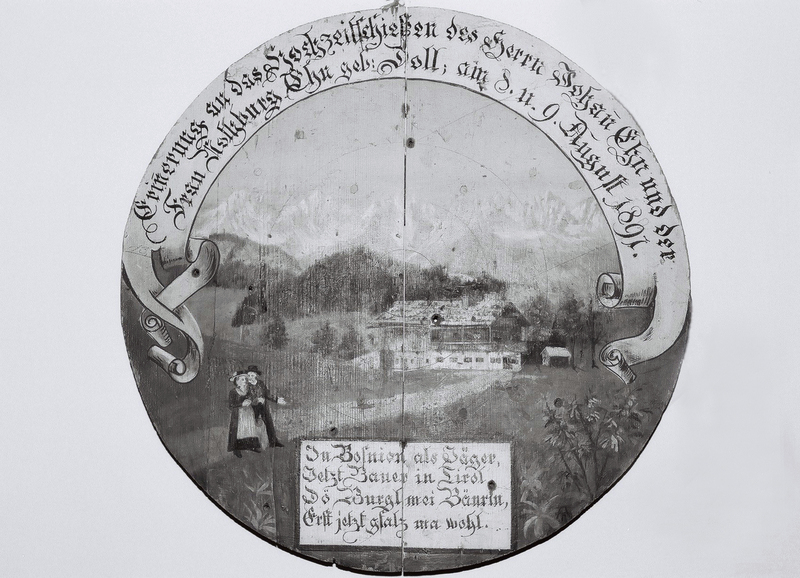 Erinerung an das Hochzeitschießen des Herrn Johañ Ehn und der
Frau Nothburg Ehn geb: Foll; am 8. u. 9. August 1891.
In Bosnien als Jäger,
Jetzt Bauer in Tirol
Dö Burgl mei Bäurin,
Erst jetzt gfalz ma wohl.